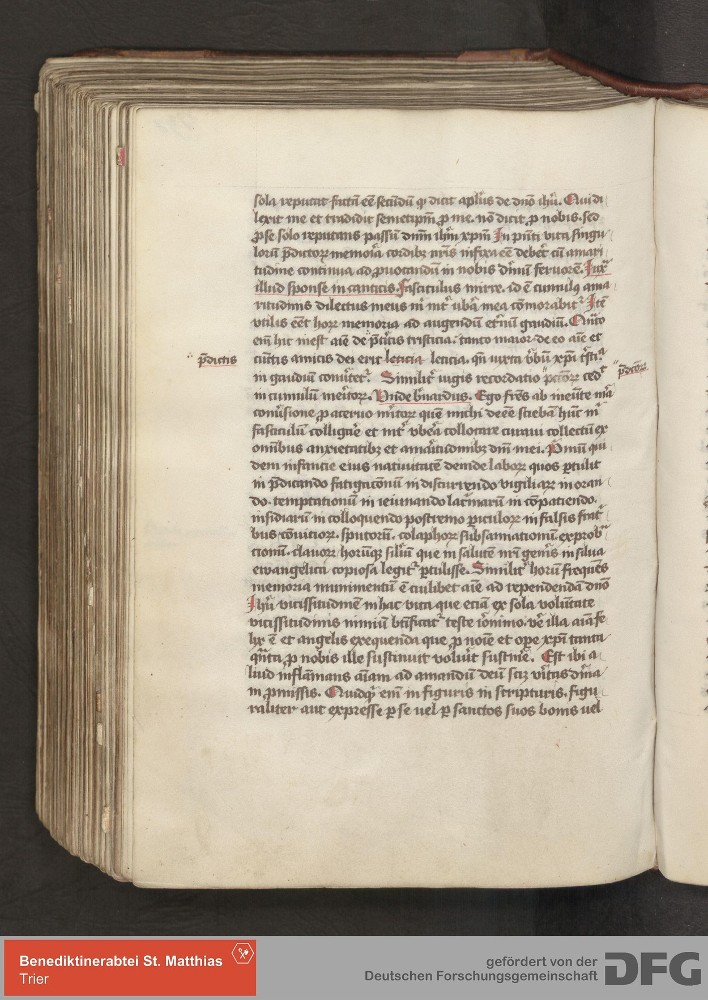 sola reputat factū eē secūdū qͥ dicit apl̄us de dn̄o ihū. Qui di
lexit me et tradidit semetip̄m ꝓ me. nō dicit ꝓ nobis. sed
ꝓ se solo reputans passū dn̄m ihm̄ xp̄m In pn̄ti vita singu
lorū p̄dictoꝝ memoria cordibꝫ nr̄is infixa eē debet cū amari
tudine continua ad ꝓuocandū in nobis diuinū feruorē. Iuxͣ
illud sponse in canticis. Fasciculus mirre. id ē cumulꝰ ama
ritudinis dilectus meus m̄ int̄ vb̄a mea cōmorabitᷣ Itē
vtilis eēt hoꝝ memoria ad augendū et̄nū gaudiū. Qn̄to
em̄ hic inest aīe de p̄dc̄is tristicia. tanto maior de eo aīe et
p̄dictis
cūctis amicis dei erit leticia leticia. qn̄ iuxta v̄bū xp̄i tristiͣ
in gaudiū conūtetᷣ. Similitᷣ iugis recordatio pctōꝝ cedᷠ
p̄dc̄oꝝ
in cumulū meritoꝝ. Vnde b̄nardus. Ego fr̄es ab ineūte mͣ
conūsione ꝓ aceruo mīto̅ꝝ que michi deēē sciebā hūc mͥ
fasciculū colligare et int̄ vbera collocare curaui collectū ex
omnibus anxietatibꝫ et amaritudinibꝫ dn̄i mei. Pͥmū qui
dem infancie eius natiuitatē deinde laboꝝ quos ꝑtulit
in p̄dicando fatigacōnū in discurrendo vigiliaꝝ in oran
do. temptationū in ieiunando lac̄maꝝ in cōpatiendo.
insidiarū in colloquendo postremo ꝑiculoꝝ in falsis fratͥ
bus cōuitioꝝ. sputorū. colaphoꝝ subsannationum exprobͣ
cionū. clauoꝝ horūqꝫ siliū que in salutē nr̄i gen̄is in silua
ewangelica copiosa legitᷣ ꝑtulisse. Similitᷣ horū frequēs
memoria munimentū ē cuilibet aīe ad rependendā dn̄o
Ihū vicissitudinē in hac vita que eciā ex sola volūtate
vicissitudinis nimiū bt̄ificatᷣ teste iōnimo. ve illa aīa fe
lix ē et angelis exequenda que ꝓ noīe et ope xp̄i tanta
qn̄ta ꝓ nobis ille sustinuit voluit sustiñe. Est ibi a
liud inflāmans aīam ad amandū deū scꝫ v̄itas diīna
in ꝓmissis. Quidqͥ em̄ in figuris in scripturis. figu
raliter aut expresse ꝑ se uel ꝑ sanctos suos bonis uel
Benediktinerabtei St. Matthias
Trier
gefördert von der
Deutschen Forschungsgemeinschaft DFG